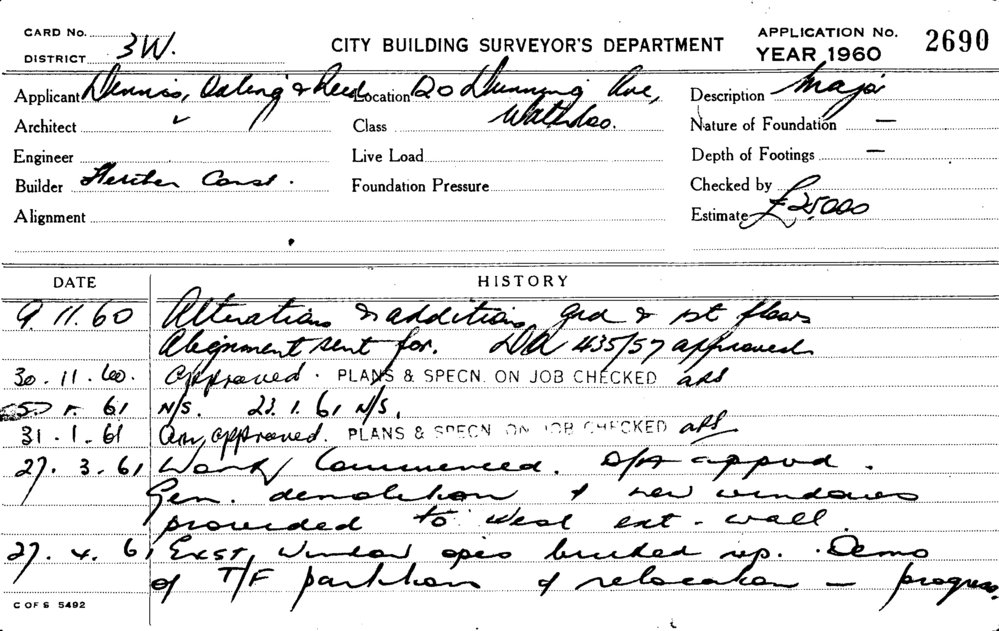 CARD No.
DISTRICT 3W.
CITY BUILDING SURVEYOR'S DEPARTMENT
APPLICATION No. 2690
YEAR 1960
Applicant Dennis, & Reed Location Dunning Ave, Description Major
Architect Class Waterloo. Nature of Foundation —
Engineer Live Load Depth of Footings —
Builder Const. Foundation Pressure Checked by
Alignment Estimate £25000
DATE HISTORY
9. 11. 60 Alterations & additions grd & 1st floors
Alignment sent for. DA 435/57 approved
30. 11. 60. approved. PLANS & SPECN. ON JOB CHECKED
1. 61 N/S. 23. 1. 61 N/S.
31. 1. 61 approved. PLANS & SPECN ON JOB CHECKED
27. 3. 61 Work Commenced. appvd.
Gen. demolition & new windows
provided to West ext. wall.
27. 4. 61 Exst, window opes bricked up. Demo
of T/F partitions & relocation — progress.
C OF S 5492